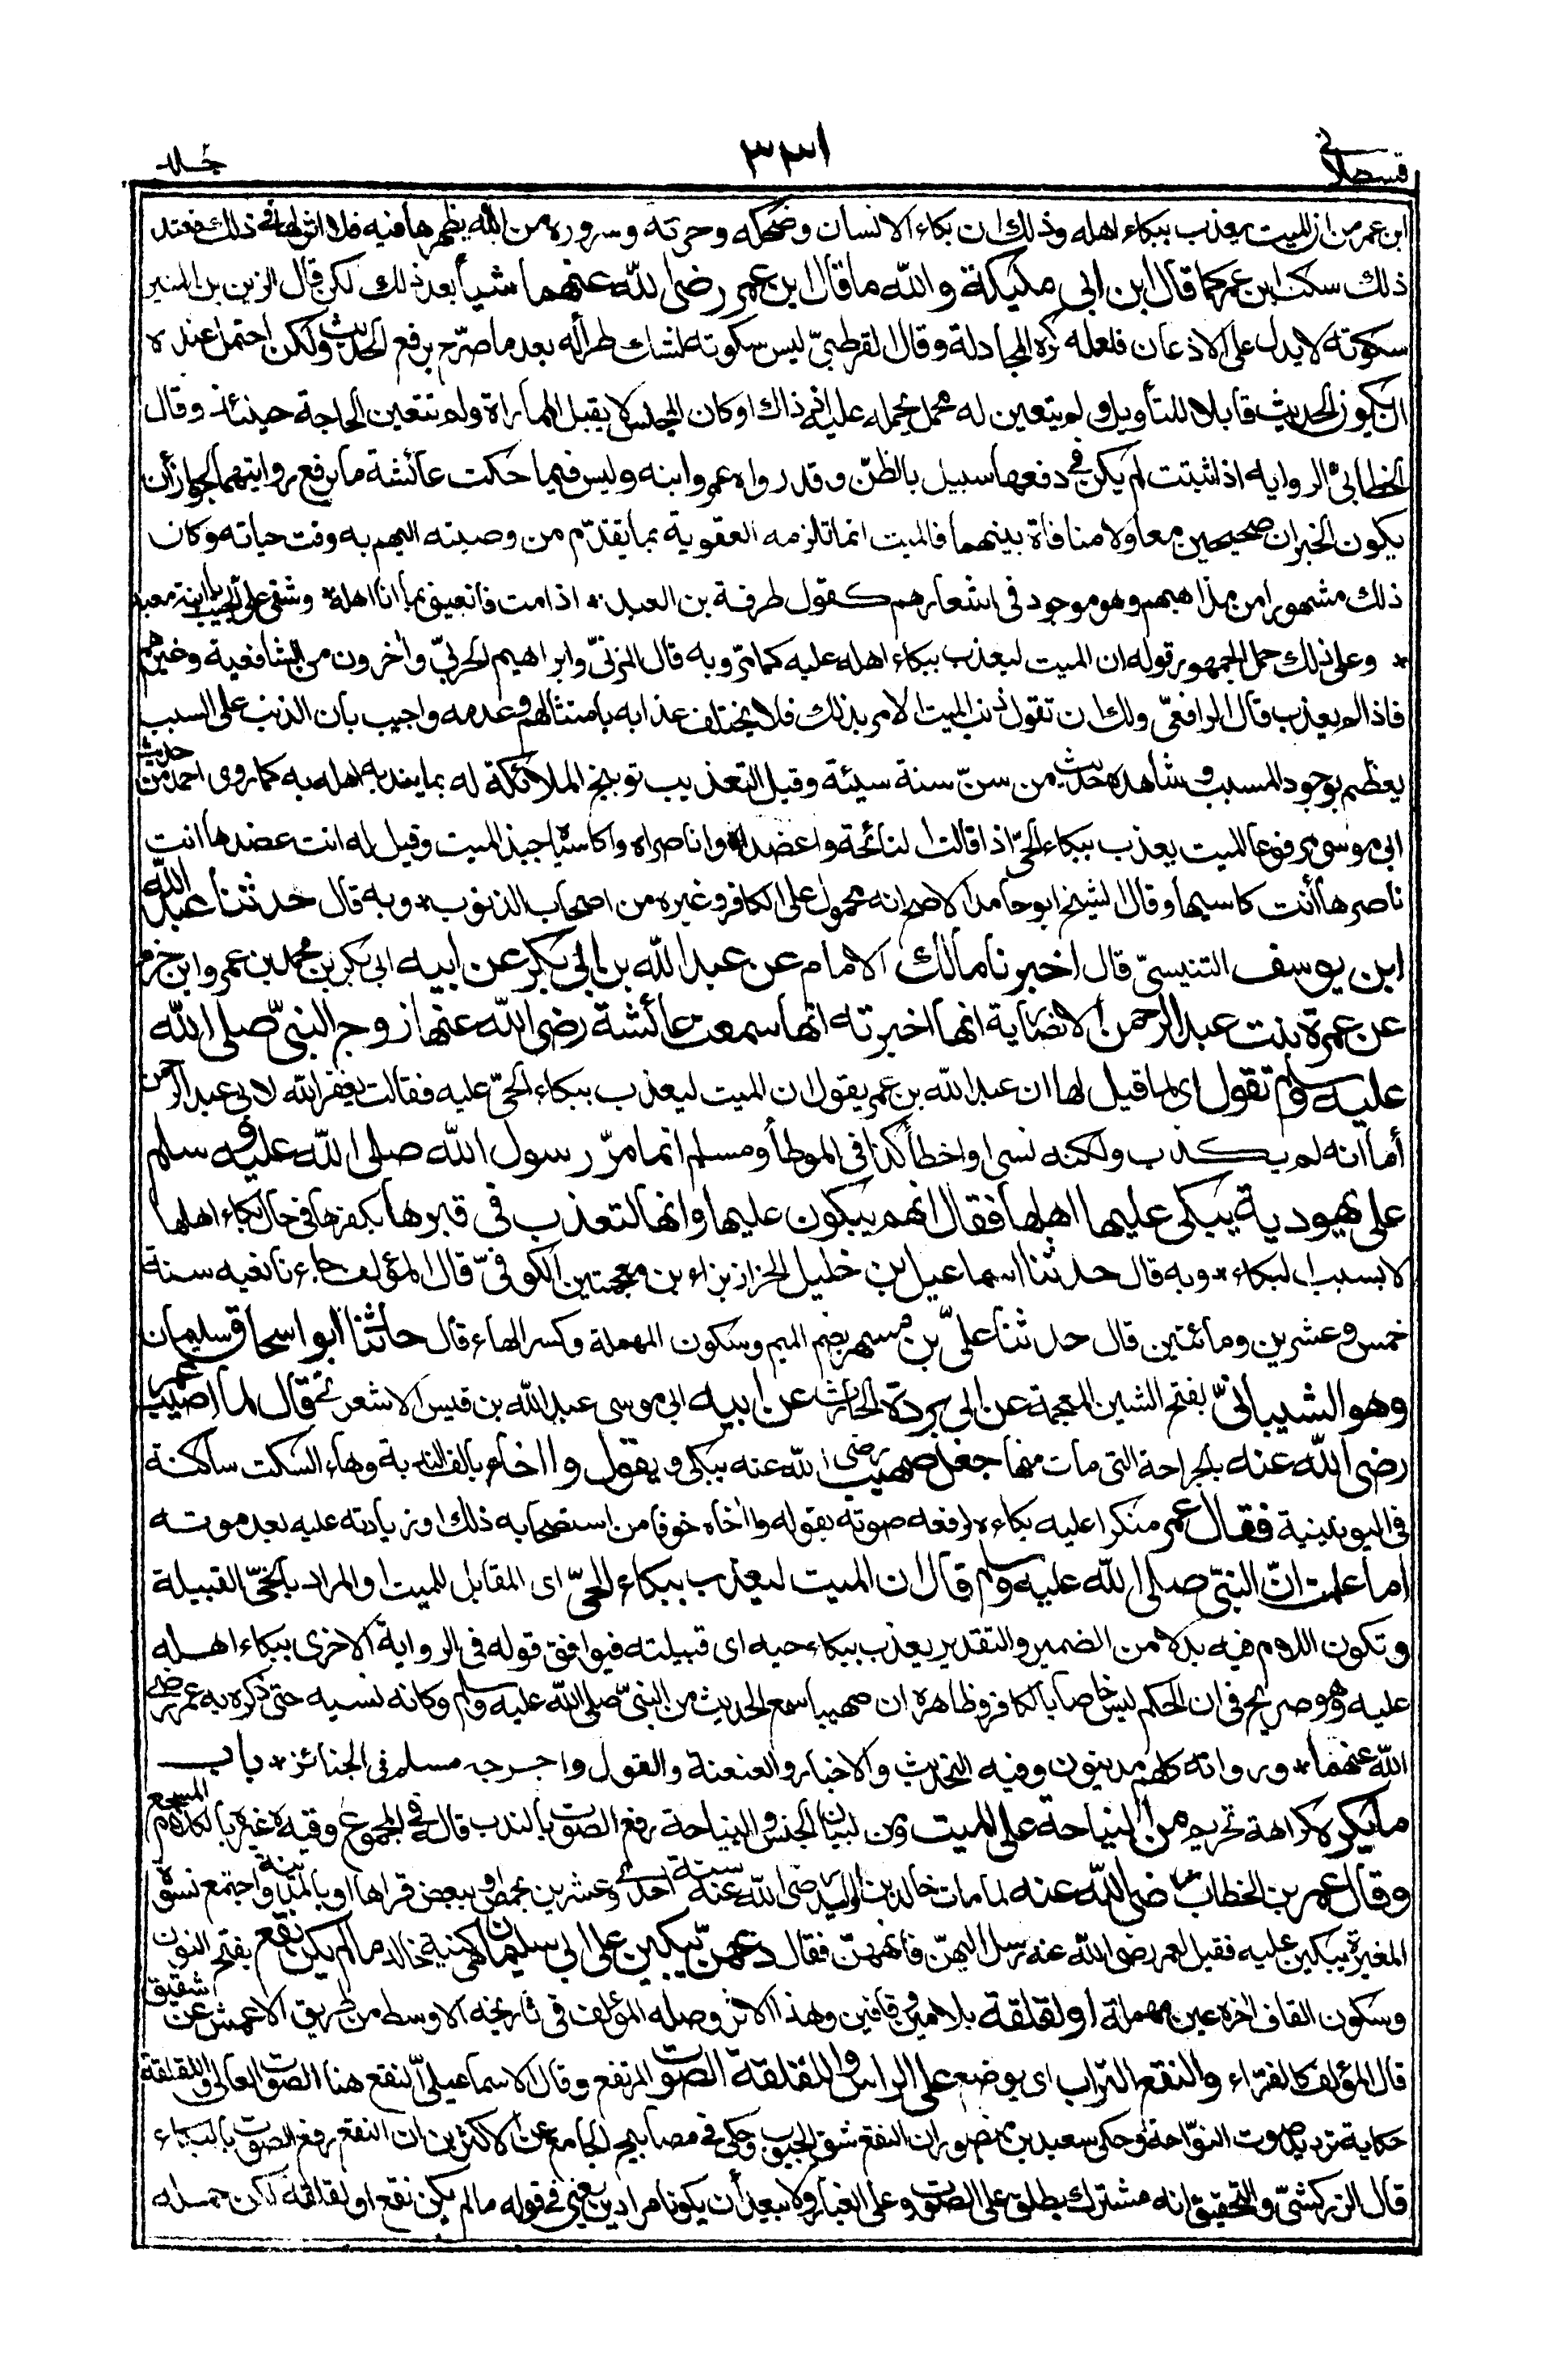 قسطلانی
٣٣١
جلد
ابن عمر من ان الميت يعذب ببكاء اهله وذلك ان بكاء الانسان وضحكه وحزنه وسروره من الله يظهرها فيه فلا اثر لها فى ذلك فعند
ذلك سكت ابن عمر كما قال ابن ابى مليكة والله ما قال ابن عمر رضى الله عنهما شيأ بعد ذلك لكن قال الزين بن المنير
سكوته لا يدل على الاذعان فلعله كره المجادلة وقال القرطبىّ ليس سكوته لشك طرأ له بعد ما صرّح برفع الحديث ولكن احتمل عنده
ان يكون الحديث قابلا للتأويل ولم يتعين له محمل يحمله عليه اذ ذاك او كان المجلس لا يقبل المماراة ولم تتعين الحاجة حينئذ وقال
الخطابىّ الرواية اذا ثبتت لم يكن فى دفعها سبيل بالظنّ وقد رواه عمر وابنه وليس فيما حكت عائشة ما يرفع روايتهما لجواز أن
يكون الخبران صحيحين معا ولا منافاة بينهما فالميت انما تلزمه العقوبة بما يقدّم من وصيته اليهم به وقت حياته وكان
ذلك مشهورا من مذاهبهم وهو موجود فى اشعارهم كقول طرفة بن العبد * اذا مت فانعينى بما انا اهله * وشقى علىّ الجيب يا ابنة معبد
* وعلى ذلك حمل الجمهور قوله ان الميت ليعذب ببكاء اهله عليه كما مرّ وبه قال المزنىّ وابراهيم الحربىّ وآخرون من الشافعية وغيرهم
فاذا لم يعذب قال الرافعىّ ولك ان تقول ذنب الميت الامر بذلك فلا يختلف عذابه بامتثالهم وعدمه واجيب بان الذنب على السبب
يعظم بوجود المسبب وشاهده حديث من سنّ سنة سيئة وقيل التعذيب توبيخ الملائكة له بما يندبه اهله به كما روى احمد من حديث
ابى موسى مرفوعا الميت يعذب ببكاء الحىّ اذا قالت النائحة واعضداه واناصراه واكاسياه جبذ الميت وقيل له انت عضدها أنت
ناصرها أنت كاسيها وقال الشيخ ابو حامد الاصح انه محمول على الكافر وغيره من اصحاب الذنوب * وبه قال حدثنا عبد الله
ابن يوسف التنيسىّ قال اخبرنا مالك الامام عن عبد الله بن ابى بكر عن ابيه ابى بكر بن محمد بن عمرو ابن حزم
عن عمرة بنت عبد الرحمن الانصارية انها اخبرته انها سمعت عائشة رضى الله عنها زوج النبىّ صلى الله
عليه وسلم تقول اى لما قيل لها ان عبد الله بن عمر يقول ان الميت ليعذب ببكاء الحىّ عليه فقالت يغفر الله لابى عبد الرحمن
أما انه لم يكذب ولكنه نسى او اخطأ كذا فى الموطأ ومسلم انما مرّ رسول الله صلى الله عليه وسلم
على يهودية يبكى عليها اهلها فقال انهم يبكون عليها وانها لتعذب فى قبرها بكفرها فى حال بكاء اهلها
لا بسبب البكاء * وبه قال حدثنا اسماعيل بن خليل الخزاز بزاءين معجمتين الكوفىّ قال المؤلف جاءنا نعيه سنة
خمس وعشرين ومائتين قال حدثنا علىّ بن مسهر بضم الميم وسكون المهملة وكسر الهاء قال حدثنا ابو اسحاق سليمان
وهو الشيبانىّ بفتح الشين المعجمة عن ابى بردة الحارث عن ابيه ابى موسى عبد الله بن قيس الاشعرىّ قال لما اصيب عمر
رضى الله عنه بالجراحة التى مات منها جعل صهيب رضى الله عنه يبكى ويقول وااخاه بالف الندبة وهاء السكت ساكنة
فى اليونينية فقال عمر منكرا عليه بكاءه لرفعه صوته بقوله وااخاه خوفا من استصحابه ذلك او زيادته عليه بعد موته
اما علمت انّ النبىّ صلى الله عليه وسلم قال ان الميت ليعذب ببكاء الحىّ اى المقابل للميت او المراد بالحىّ القبيلة
وتكون اللام فيه بدلا من الضمير والتقدير يعذب ببكاء حيه اى قبيلته فيوافق قوله فى الرواية الاخرى ببكاء اهله
عليه وهو صريح فى ان الحكم ليس خاصا بالكافر وظاهره ان صهيبا سمع الحديث من النبىّ صلى الله عليه وسلم وكانه نسيه حتى ذكره به عمر رضى
الله عنهما * ورواته كلهم مدنيون وفيه التحديث والاخبار والعنعنة والقول واخرجه مسلم فى الجنائز * باب
ما يكره كراهة تحريم من النياحة على الميت ومن لبيان الجنس والنياحة رفع الصوت بالندب قاله فى المجموع وقيده غيره بالكلام المسجع
وقال عمر بن الخطاب رضى الله عنه لما مات خالد بن الوليد رضى الله عنه سنة احدى وعشرين بحمص او ببعض قراها او بالمدينة واجتمع نسوة
المغيرة يبكين عليه فقيل لعمر رضى الله عنه ارسل اليهنّ فانههنّ فقال دعهنّ يبكين على ابى سليمان هى كنية خالد ما لم يكن نقع بفتح النون
وسكون القاف اخره عين مهملة او لقلقة بلامين وقافين وهذا الاثر وصله المؤلف فى تاريخه الاوسط من طريق الاعمش عن شقيق
قال المؤلف كالفرّاء والنقع التراب اى يوضع على الراس واللقلقة الصوت المرتفع وقال الاسماعيلىّ النقع هنا الصوت العالى واللقلقة
حكاية ترديد صوت النوّاحة وحكى سعيد بن منصور ان النقع شق الجيوب وحكى فى مصابيح الجامع عن الاكثرين ان النقع رفع الصوت بالبكاء
قال الزركشىّ والتحقيق انه مشترك يطلق على الصوت وعلى الغبار ولا يبعد أن يكونا مرادين يعنى فى قوله ما لم يكن نقع او لقلقة لكن حمله